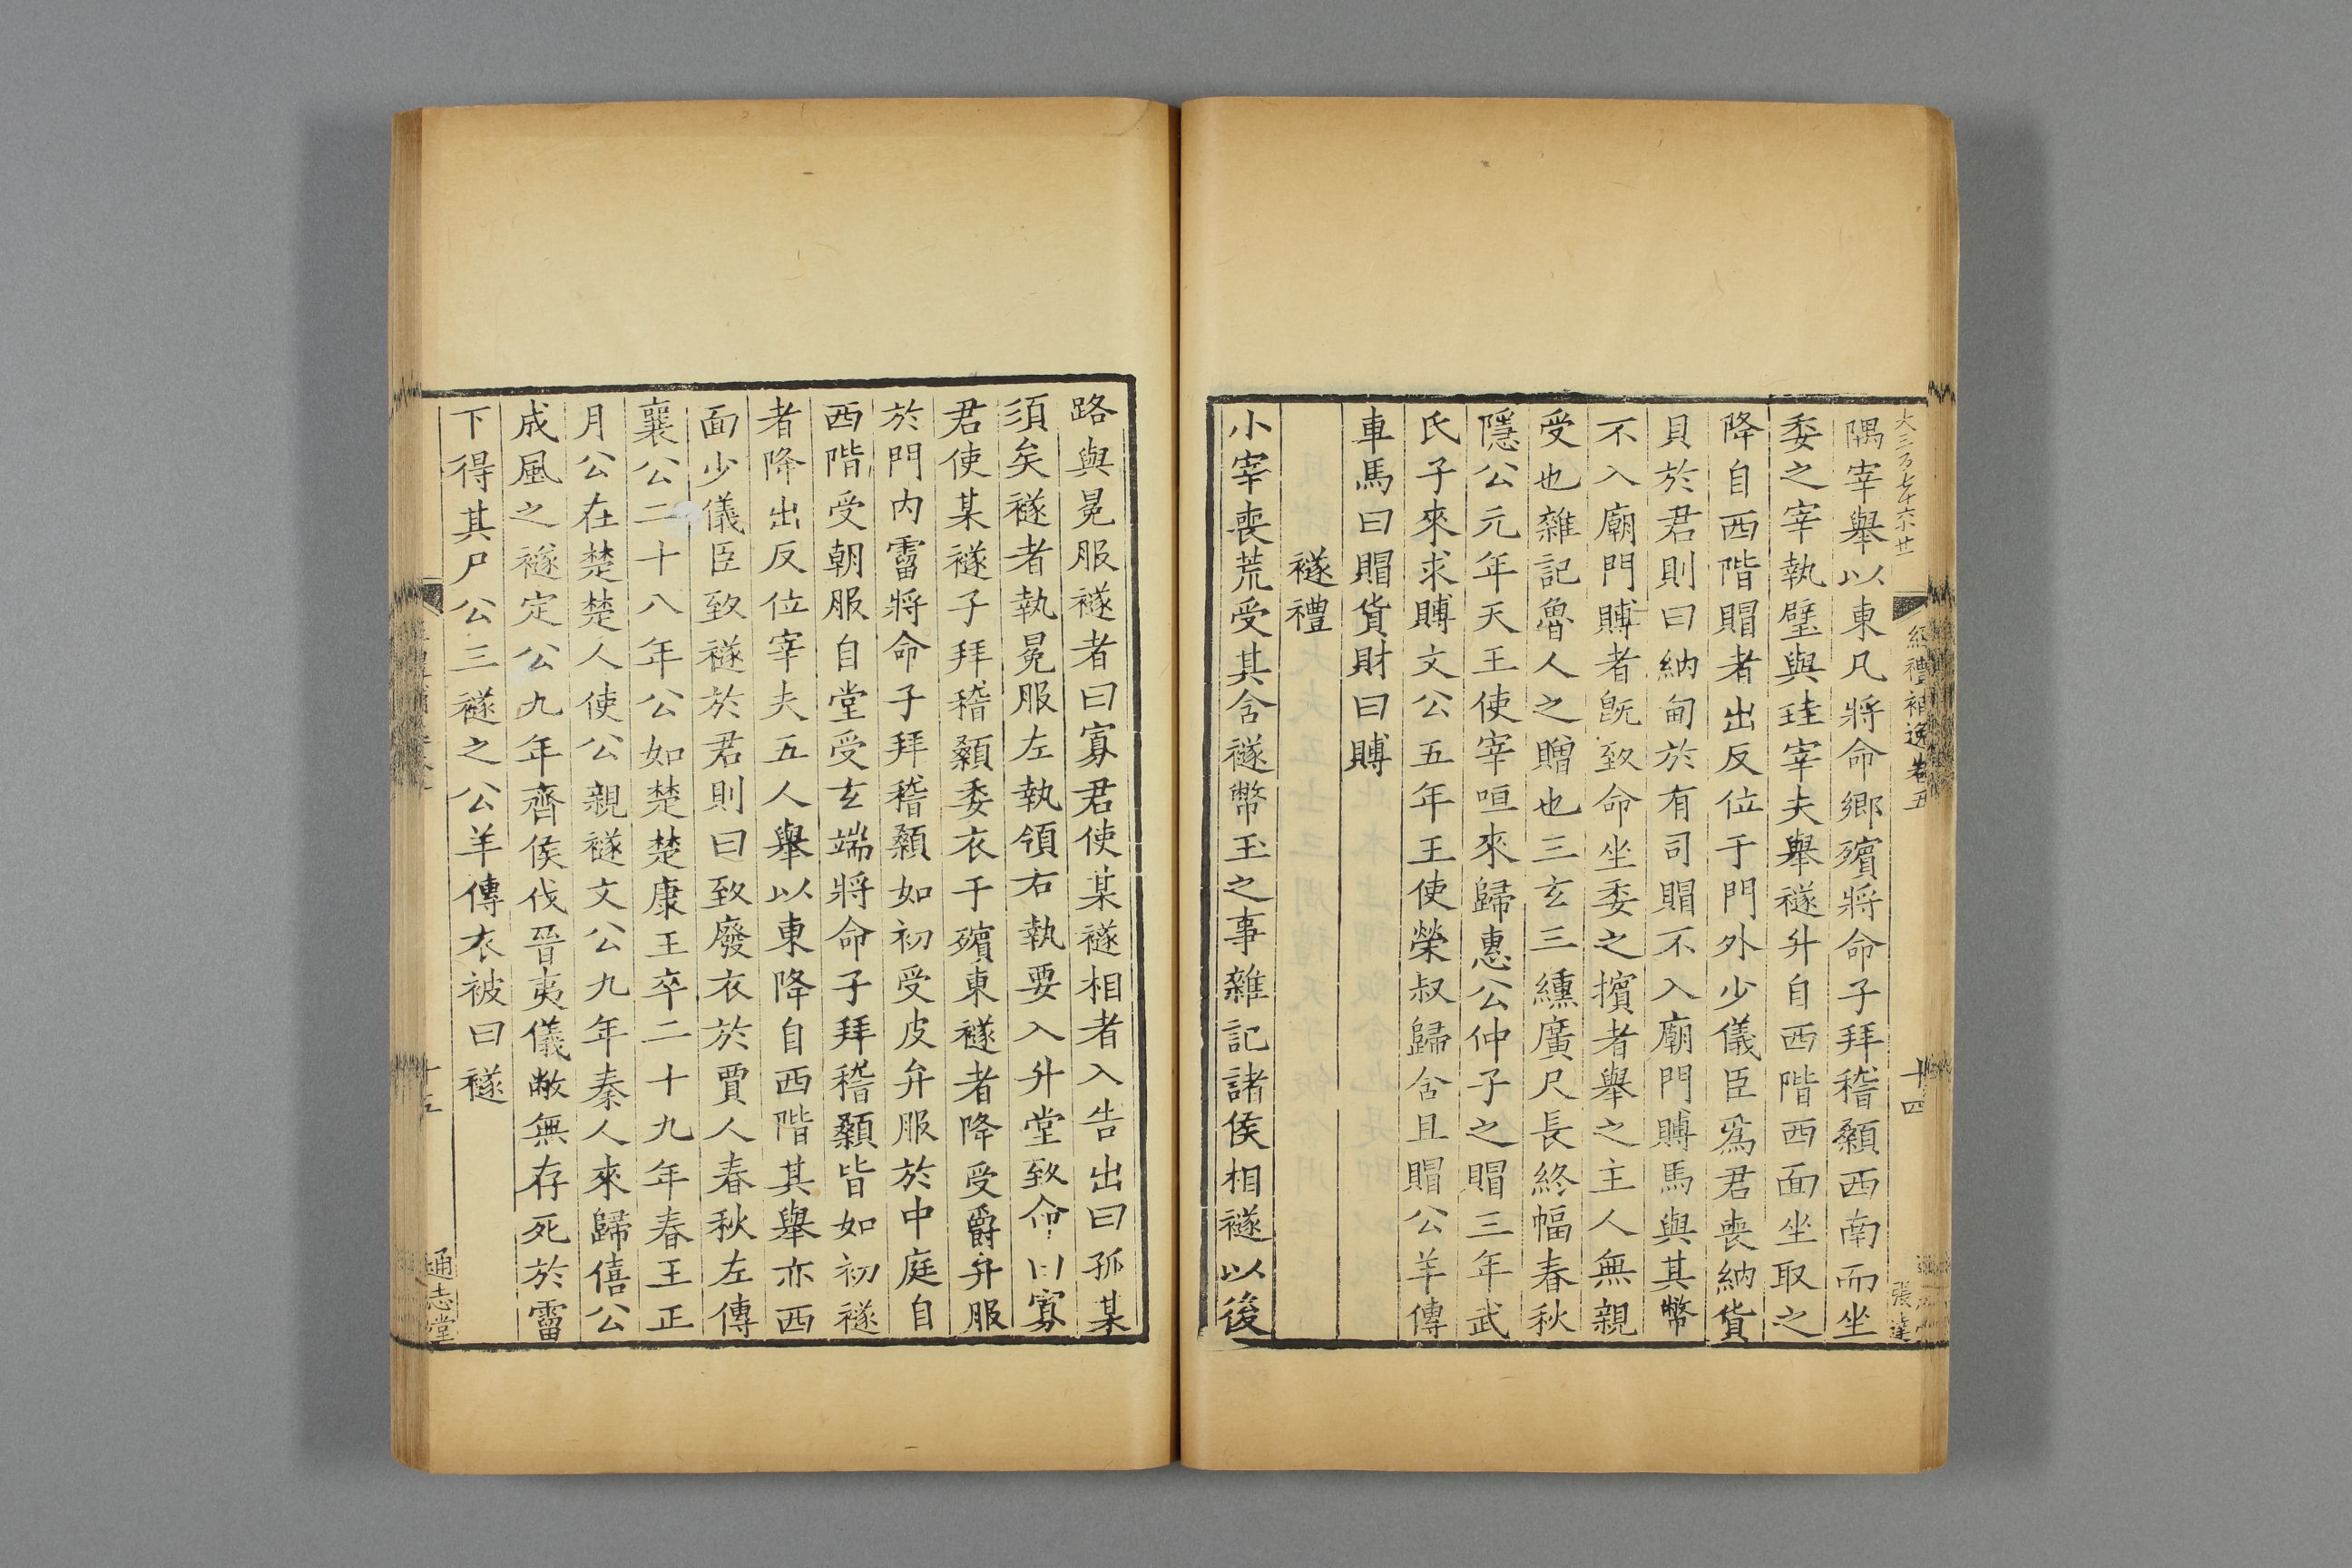 經禮補逸卷五
十四
隅宰舉以東凡將命鄉殯將命子拜稽顙西南而坐
委之宰執璧與珪宰夫舉襚升自西階西面坐取之
降自西階賵者出反位于門外少儀臣爲君喪納貨
貝於君則曰納甸於有司賵不入廟門賻馬與其幣
不入廟門賻者旣致命坐委之擯者舉之主人無親
受也雜記魯人之贈也三玄三纁廣尺長終幅春秋
隱公元年天王使宰咺來歸惠公仲子之賵三年武
氏子來求賻文公五年王使榮叔歸含且賵公羊傳
車馬曰賵貨財曰賻
襚禮
小宰喪荒受其含襚幣玉之事雜記諸侯相襚以後
路與冕服襚者曰寡君使某襚相者入告出曰孤某
須矣襚者執冕服左執領右執要入升堂致命曰寡
君使某襚子拜稽顙委衣于殯東襚者降受爵弁服
於門内霤將命子拜稽顙如初受皮弁服於中庭自
西階受朝服自堂受玄端將命子拜稽顙皆如初襚
者降出反位宰夫五人舉以東降自西階其舉亦西
面少儀臣致襚於君則曰致廢衣於賈人春秋左傳
襄公二十八年公如楚楚康王卒二十九年春王正
月公在楚楚人使公親襚文公九年秦人來歸僖公
成風之襚定公九年齊侯伐晉夷儀敝無存死於霤
下得其尸公三襚之公羊傳衣被曰襚
十五
通志堂